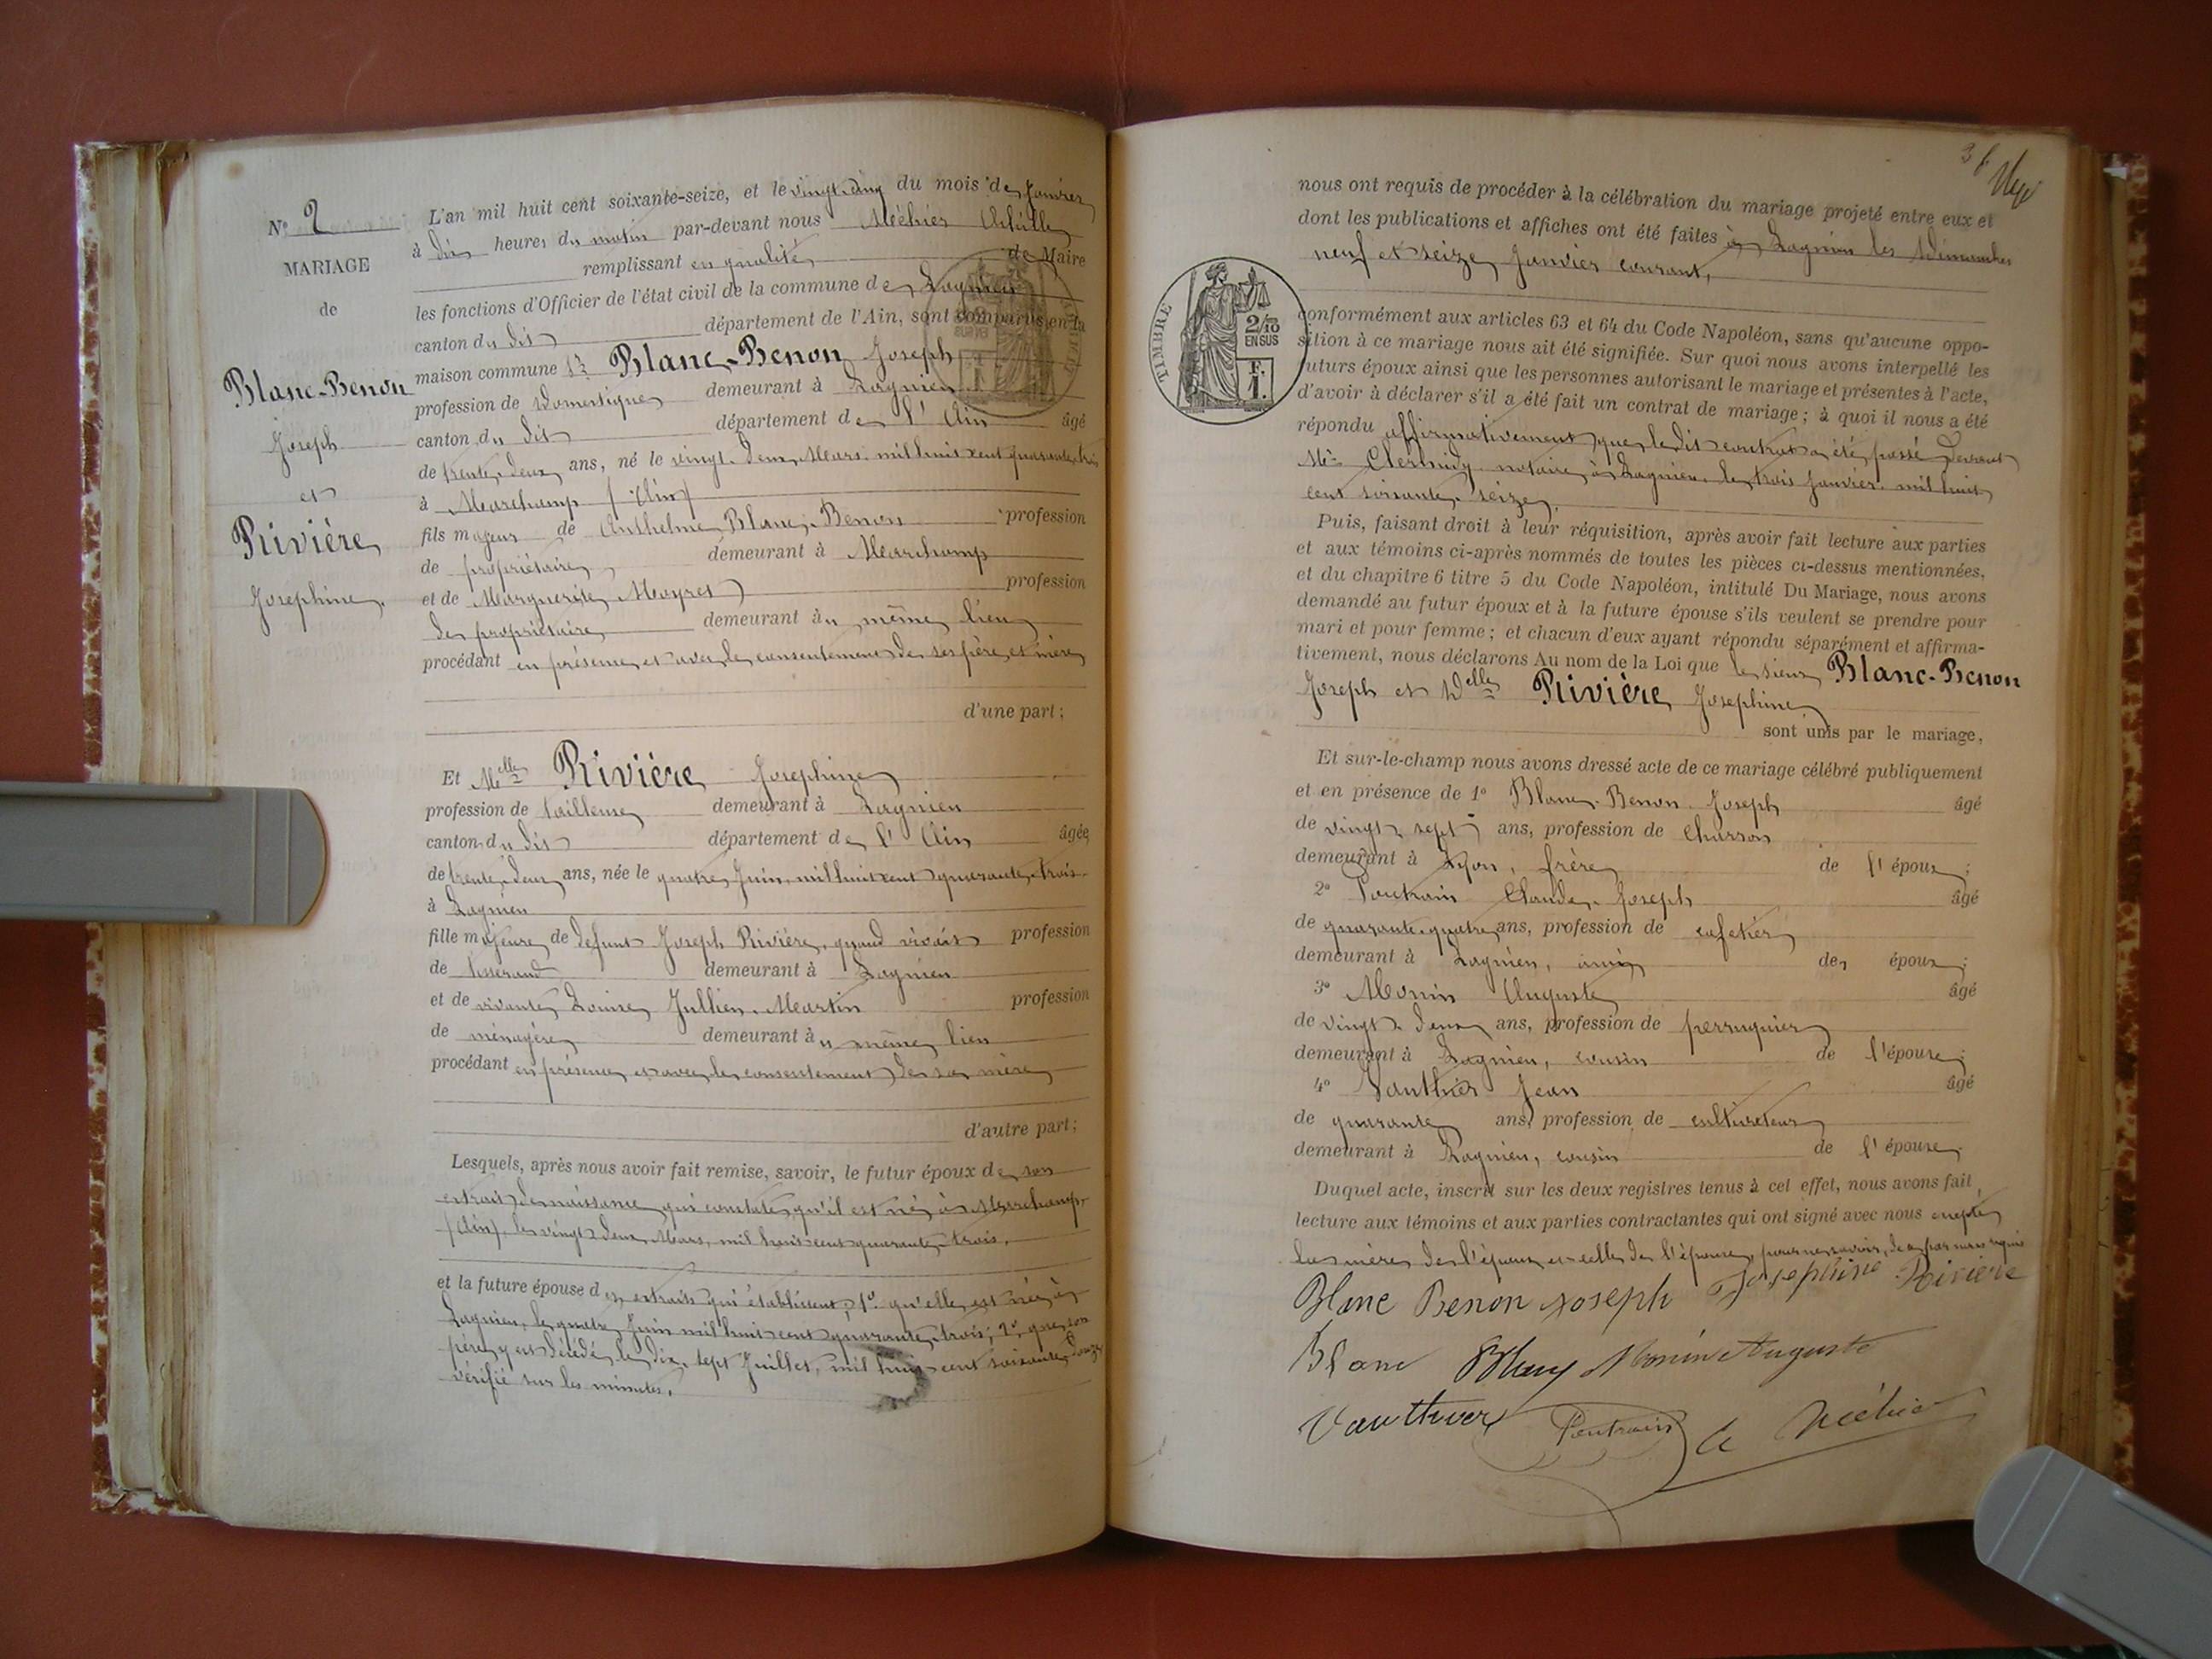 N° 2
MARIAGE
de
Blanc-Benon
Joseph
et
Rivière
Josephine.
L'an mil huit cent soixante-seize, et le vingt-cinq du mois de Janvier
à dix heures du matin par-devant nous Méhier Achille
remplissant en qualité de Maire
les fonctions d'Officier de l'état civil de la commune de Lagnieu
canton du dit département de l'Ain, sont comparus en la
maison commune Sr Blanc-Benon Joseph
profession de Domestique demeurant à Lagnieu
canton du dit département de l'Ain âgé
de trente-deux ans, né le vingt-deux Mars mil huit cent quarante-trois
à Marchamp (Ain)
fils majeur de Anthelme Blanc-Benon profession
de propriétaire, demeurant à Marchamp
et de Marguerite Moyret profession
de propriétaire demeurant au même lieu
procédant en présence et avec le consentement de ses père et mère
d'une part;
Et Melle Rivière Josephine
profession de tailleuse demeurant à Lagnieu
canton du dit département de l'Ain âgée
de trente-deux ans, née le quatre Juin mil huit cent quarante-trois
à Lagnieu
fille majeure de défunt Joseph Rivière, quand vivait profession
de tisserand demeurant à Lagnieu
et de vivante Louise Jullien-Martin profession
de ménagère demeurant au même lieu
procédant en présence et avec le consentement de sa mère
d'autre part;
Lesquels, après nous avoir fait remise, savoir, le futur époux de son
extrait de naissance qui constate qu'il est né à Marchamp
(Ain), le vingt-deux Mars, mil huit cent quarante-trois.
et la future épouse d'extraits qui établissent, 1° qu'elle est née à
Lagnieu, le quatre Juin mil huit cent quarante-trois; 2° que son
père y est décédé le dix-sept Juillet, mil huit cent soixante-douze
vérifié sur les minutes.
nous ont requis de procéder à la célébration du mariage projeté entre eux et
dont les publications et affiches ont été faites à Lagnieu les Dimanches
neuf et seize Janvier courant,
TIMBRE
2/10
EN SUS
F.
1.
conformément aux articles 63 et 64 du Code Napoléon, sans qu'aucune oppo-
sition à ce mariage nous ait été signifiée. Sur quoi nous avons interpellé les
futurs époux ainsi que les personnes autorisant le mariage et présentes à l'acte,
d'avoir à déclarer s'il a été fait un contrat de mariage; à quoi il nous a été
répondu affirmativement que le dit contrat a été passé devant
Me notaire à Lagnieu, le trois Janvier mil huit
cent soixante-seize.
Puis, faisant droit à leur réquisition, après avoir fait lecture aux parties
et aux témoins ci-après nommés de toutes les pièces ci-dessus mentionnées,
et du chapitre 6 titre 5 du Code Napoléon, intitulé Du Mariage, nous avons
demandé au futur époux et à la future épouse s'ils veulent se prendre pour
mari et pour femme; et chacun d'eux ayant répondu séparément et affirma-
tivement, nous déclarons Au nom de la Loi que le sieur Blanc-Benon
Joseph et Delle Rivière Josephine
sont unis par le mariage,
Et sur-le-champ nous avons dressé acte de ce mariage célébré publiquement
et en présence de 1° Blanc-Benon Joseph âgé
de vingt-sept ans, profession de Charron
demeurant à Lyon, frère de l'époux;
2° Poutrain Claude-Joseph âgé
de quarante-quatre ans, profession de cafetier
demeurant à Lagnieu, ami des époux;
3° Monin Auguste âgé
de vingt-deux ans, profession de perruquier
demeurant à Lagnieu, cousin de l'épouse;
4° Vauthier Jean âgé
de quarante ans, profession de cultivateur
demeurant à Lagnieu, cousin de l'épouse
Duquel acte, inscrit sur les deux registres tenus à cet effet, nous avons fait
lecture aux témoins et aux parties contractantes qui ont signé avec nous excepté
la mère de l'époux et celle de l'épouse, pour ne savoir, de ce par nous requis
Blanc Benon Joseph Josephine Rivière
Blanc Monin Auguste
Vauthier Poutrain A Méhier